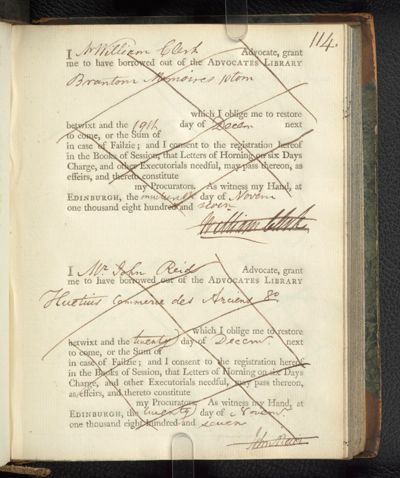 114.
I Mr William Clerk Advocate, grant
me to have borrowed out of the ADVOCATES LIBRARY
Brantom Memoires 10 tom
which I oblige me to restore
betwixt and the 19th day of Decem next
to come, or the Sum of
in case of Failzie; and I consent to the registration hereof
in the Books of Session, that Letters of Horning on six Days
Charge, and other Executorials needful, may pass thereon, as
effeirs, and thereto constitute
my Procurators. As witness my Hand, at
EDINBURGH, the day of Novem
one thousand eight hundred and seven
William Clerk
I Mr. John Reid Advocate, grant
me to have borrowed out of the ADVOCATES LIBRARY
Huetius Commerce des Anciens 8o
which I oblige me to restore
betwixt and the twenty day of Decemr next
to come, or the Sum of
in case of Failzie; and I consent to the registration hereof
in the Books of Session, that Letters of Horning on six Days
Charge, and other Executorials needful, may pass thereon,
as effeirs, and thereto constitute
my Procurators. As witness my Hand, at
EDINBURGH, the twenty day of Novemr
one thousand eight hundred and seven
John Reid